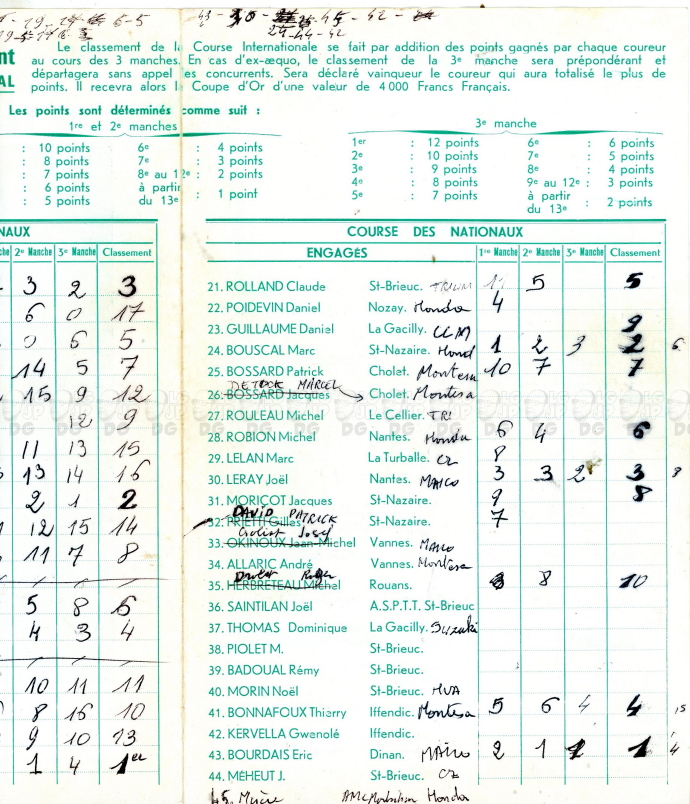 43 - 30 - 45 - 42 -
6-5
24-44-42
nt
AL
Le classement de la Course Internationale se fait par addition des points gagnés par chaque coureur
au cours des 3 manches. En cas d'ex-æquo, le classement de la 3e manche sera prépondérant et
départagera sans appel les concurrents. Sera déclaré vainqueur le coureur qui aura totalisé le plus de
points. Il recevra alors la Coupe d'Or d'une valeur de 4 000 Francs Français.
Les points sont déterminés comme suit :
1re et 2e manches
: 10 points 6e : 4 points
: 8 points 7e : 3 points
: 7 points 8e au 12e : 2 points
: 6 points à partir
: 5 points du 13e : 1 point
3e manche
1er : 12 points 6e : 6 points
2e : 10 points 7e : 5 points
3e : 9 points 8e : 4 points
4e : 8 points 9e au 12e : 3 points
5e : 7 points à partir
du 13e : 2 points
NAUX
che 2e Manche 3e Manche Classement
3 2 3
6 0 17
0 6 5
14 5 7
15 9 12
12 9
11 13 15
13 14 16
2 1 2
12 15 14
11 7 8
5 8 6
4 3 4
10 11 11
8 16 10
9 10 13
1 4 1er
COURSE DES NATIONAUX
ENGAGÉS 1re Manche 2e Manche 3e Manche Classement
21. ROLLAND Claude St-Brieuc. 11 5 5
22. POIDEVIN Daniel Nozay. Honda 4
23. GUILLAUME Daniel La Gacilly. CCM 9
24. BOUSCAL Marc St-Nazaire. Hond 1 2 3 2 6
25. BOSSARD Patrick Cholet. Montesa 10 7 7
DETOCK MARCEL
26. BOSSARD Jacques Cholet. Montesa
27. ROULEAU Michel Le Cellier. TRI
28. ROBION Michel Nantes. Honda 6 4 6
29. LELAN Marc La Turballe. CZ 8
30. LERAY Joël Nantes. MAICO 3 3 2 3 8
31. MORICOT Jacques St-Nazaire. 9 8
DAVID PATRICK
32. PRIETTI Gilles St-Nazaire. 7
Josef
33. OKINOUX Jean-Michel Vannes. MAICO
34. ALLARIC André Vannes. Montesa
Roger
35. HERBRETEAU Michel Rouans. 8 10
36. SAINTILAN Joël A.S.P.T.T. St-Brieuc
37. THOMAS Dominique La Gacilly. Suzuki
38. PIOLET M. St-Brieuc.
39. BADOUAL Rémy St-Brieuc.
40. MORIN Noël St-Brieuc. HVA
41. BONNAFOUX Thierry Iffendic. Montesa 5 6 4 4 15
42. KERVELLA Gwenolé Iffendic.
43. BOURDAIS Eric Dinan. MAICO 2 1 1 1 4
44. MÉHEUT J. St-Brieuc. CZ
45. Honda